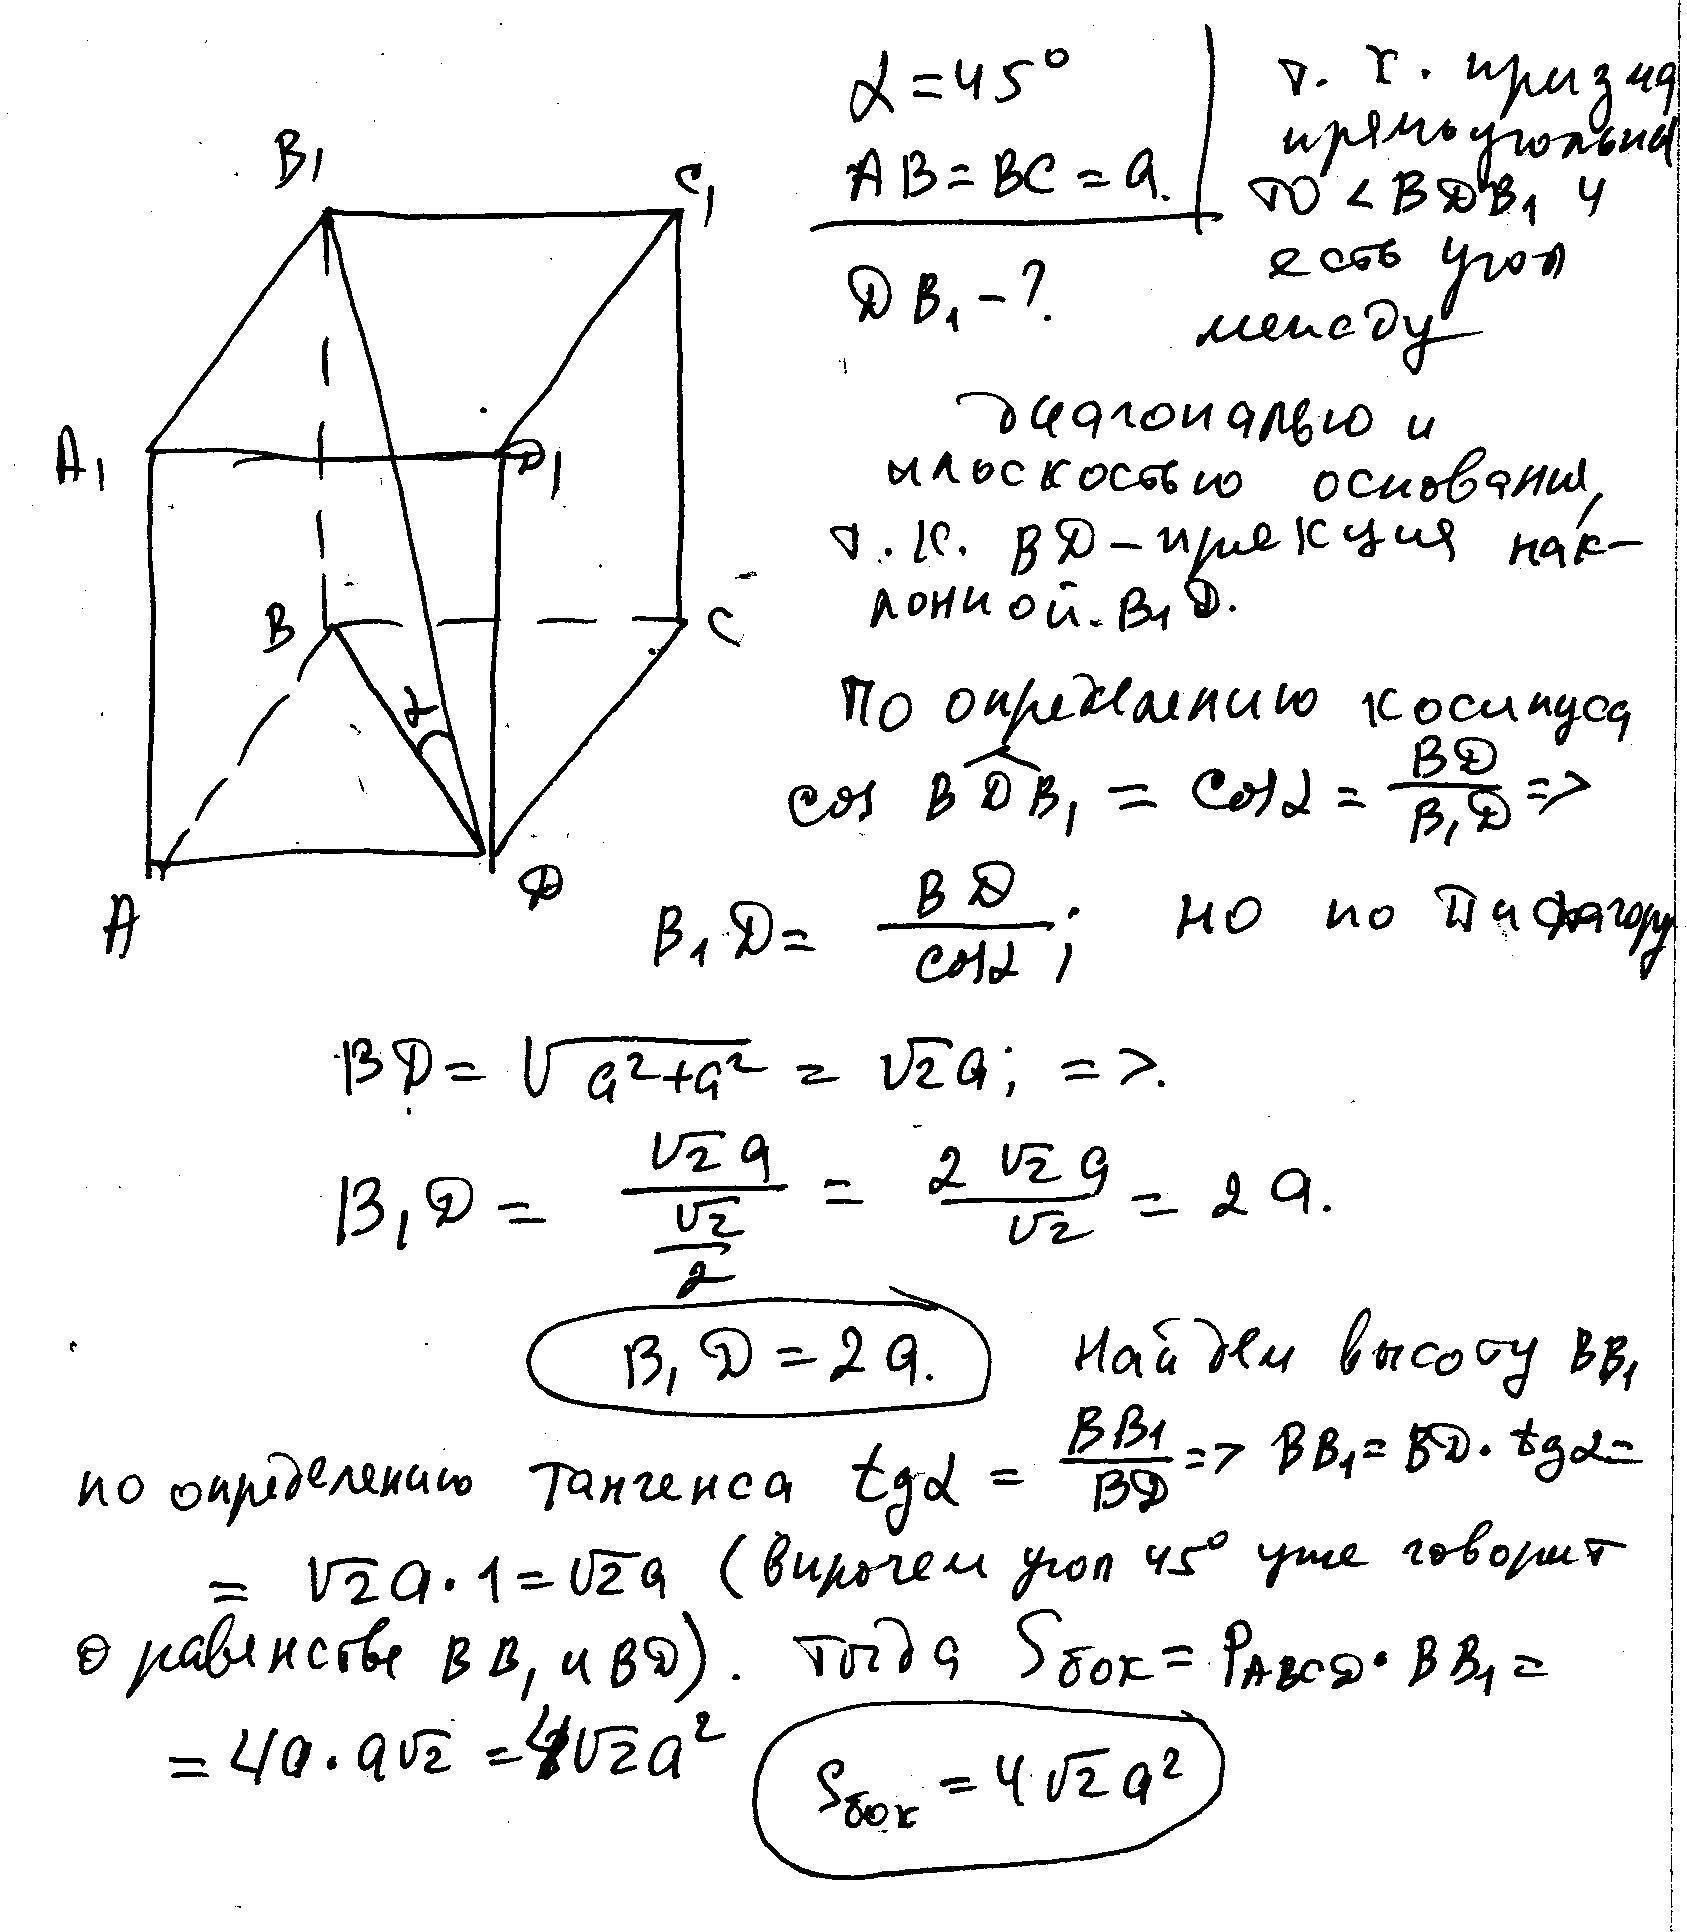 B₁
C₁
A₁
D₁
B
C
α
A
D
α = 45°
AB = BC = a.
DB₁ - ?
т. к. призма
прямоугольна
то < BDB₁ и
есть угол
между
диагональю и
плоскостью основания,
т. к. BD - проекция нак-
лонной B₁D.
По определению косинуса
cos BDB₁ = cos α = BD / B₁D =>
B₁D = BD / cos α ; но по Пифагору
BD = √(a² + a²) = √2 a; =>.
B₁D = √2 a / (√2 / 2) = 2√2 a / √2 = 2a.
B₁D = 2a. Найдем высоту BB₁
по определению тангенса tg α = BB₁ / BD => BB₁ = BD · tg α =
= √2 a · 1 = √2 a (впрочем угол 45° уже говорит
о равенстве BB₁ и BD). Тогда Sбок = PABCD · BB₁ =
= 4a · a√2 = 4√2 a²
Sбок = 4√2 a²